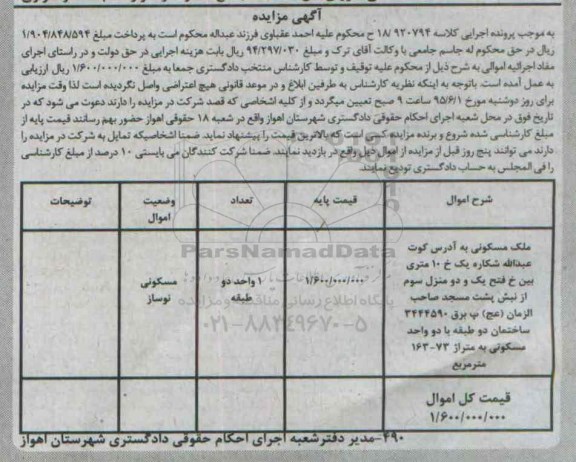 آگهی مزایده
به موجب پرونده اجرایی کلاسه ۹۲۰۷۹۴/ ۱۸ ح محکوم علیه احمد عقباوی فرزند عبداله محکوم است به پرداخت مبلغ ۱/۹۰۴/۸۴۸/۵۹۴
ریال در حق محکوم له جاسم جامعی با وکالت آقای ترک و مبلغ ۹۴/۲۹۷/۰۳۰ ریال بابت هزینه اجرایی در حق دولت و در راستای اجرای
مفاد اجرائیه اموالی به شرح ذیل از محکوم علیه توقیف و توسط کارشناس منتخب دادگستری جمعا به مبلغ ۱/۶۰۰/۰۰۰/۰۰۰ ریال ارزیابی
به عمل آمده است. باتوجه به اینکه نظریه کارشناس به طرفین ابلاغ و در موعد قانونی هیچ اعتراضی واصل نگردیده است لذا وقت مزایده
برای روز دوشنبه مورخ ۹۵/۶/۱ ساعت ۹ صبح تعیین میگردد و از کلیه اشخاصی که قصد شرکت در مزایده را دارند دعوت می شود که در
تاریخ فوق در محل شعبه اجرای احکام حقوقی دادگستری شهرستان اهواز واقع در شعبه ۱۸ حقوقی اهواز حضور بهم رسانند قیمت پایه از
مبلغ کارشناسی شده شروع و برنده مزایده کسی است که بالاترین قیمت را پیشنهاد نماید. ضمنا اشخاصیکه تمایل به شرکت در مزایده را
دارند می توانند پنج روز قبل از مزایده از اموال ذیل واقع در بازدید نمایند. ضمنا شرکت کنندگان می بایستی ۱۰ درصد از مبلغ کارشناسی
را فی المجلس به حساب دادگستری تودیع نمایند.
شرح اموال
قیمت پایه
تعداد
وضعیت
اموال
توضیحات
ملک مسکونی به آدرس کوت
عبدالله شکاره یک خ ۱۰ متری
بین خ فتح یک و دو منزل سوم
از نبش پشت مسجد صاحب
الزمان (عج) پ برق ۳۴۴۴۵۹۰
ساختمان دو طبقه با دو واحد
مسکونی به متراژ ۷۳-۱۶۳
مترمربع
۱/۶۰۰/۰۰۰/۰۰۰
۱ واحد دو
طبقه
مسکونی
نوساز
قیمت کل اموال
۱/۶۰۰/۰۰۰/۰۰۰
ParsNamadData
پایگاه اطلاع رسانی مناقصه و مزایده
۰۲۱-۸۸۳۴۹۶۷۰-۵
۴۹۰-مدیر دفترشعبه اجرای احکام حقوقی دادگستری شهرستان اهواز